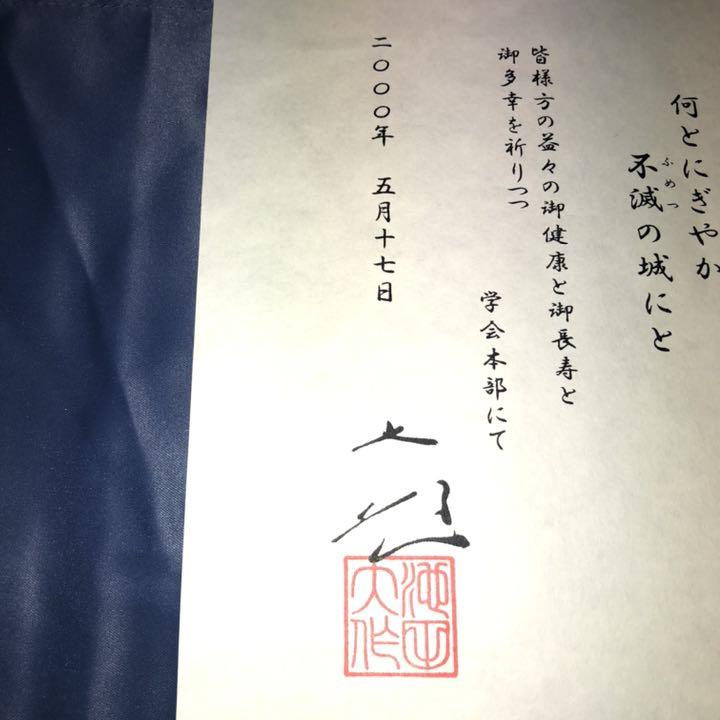 何とにぎやか
不滅の城にと
ふめつ
皆様方の益々の御健康と御長寿と
御多幸を祈りつつ
学会本部にて
二〇〇〇年 五月十七日
大作
池田
大作